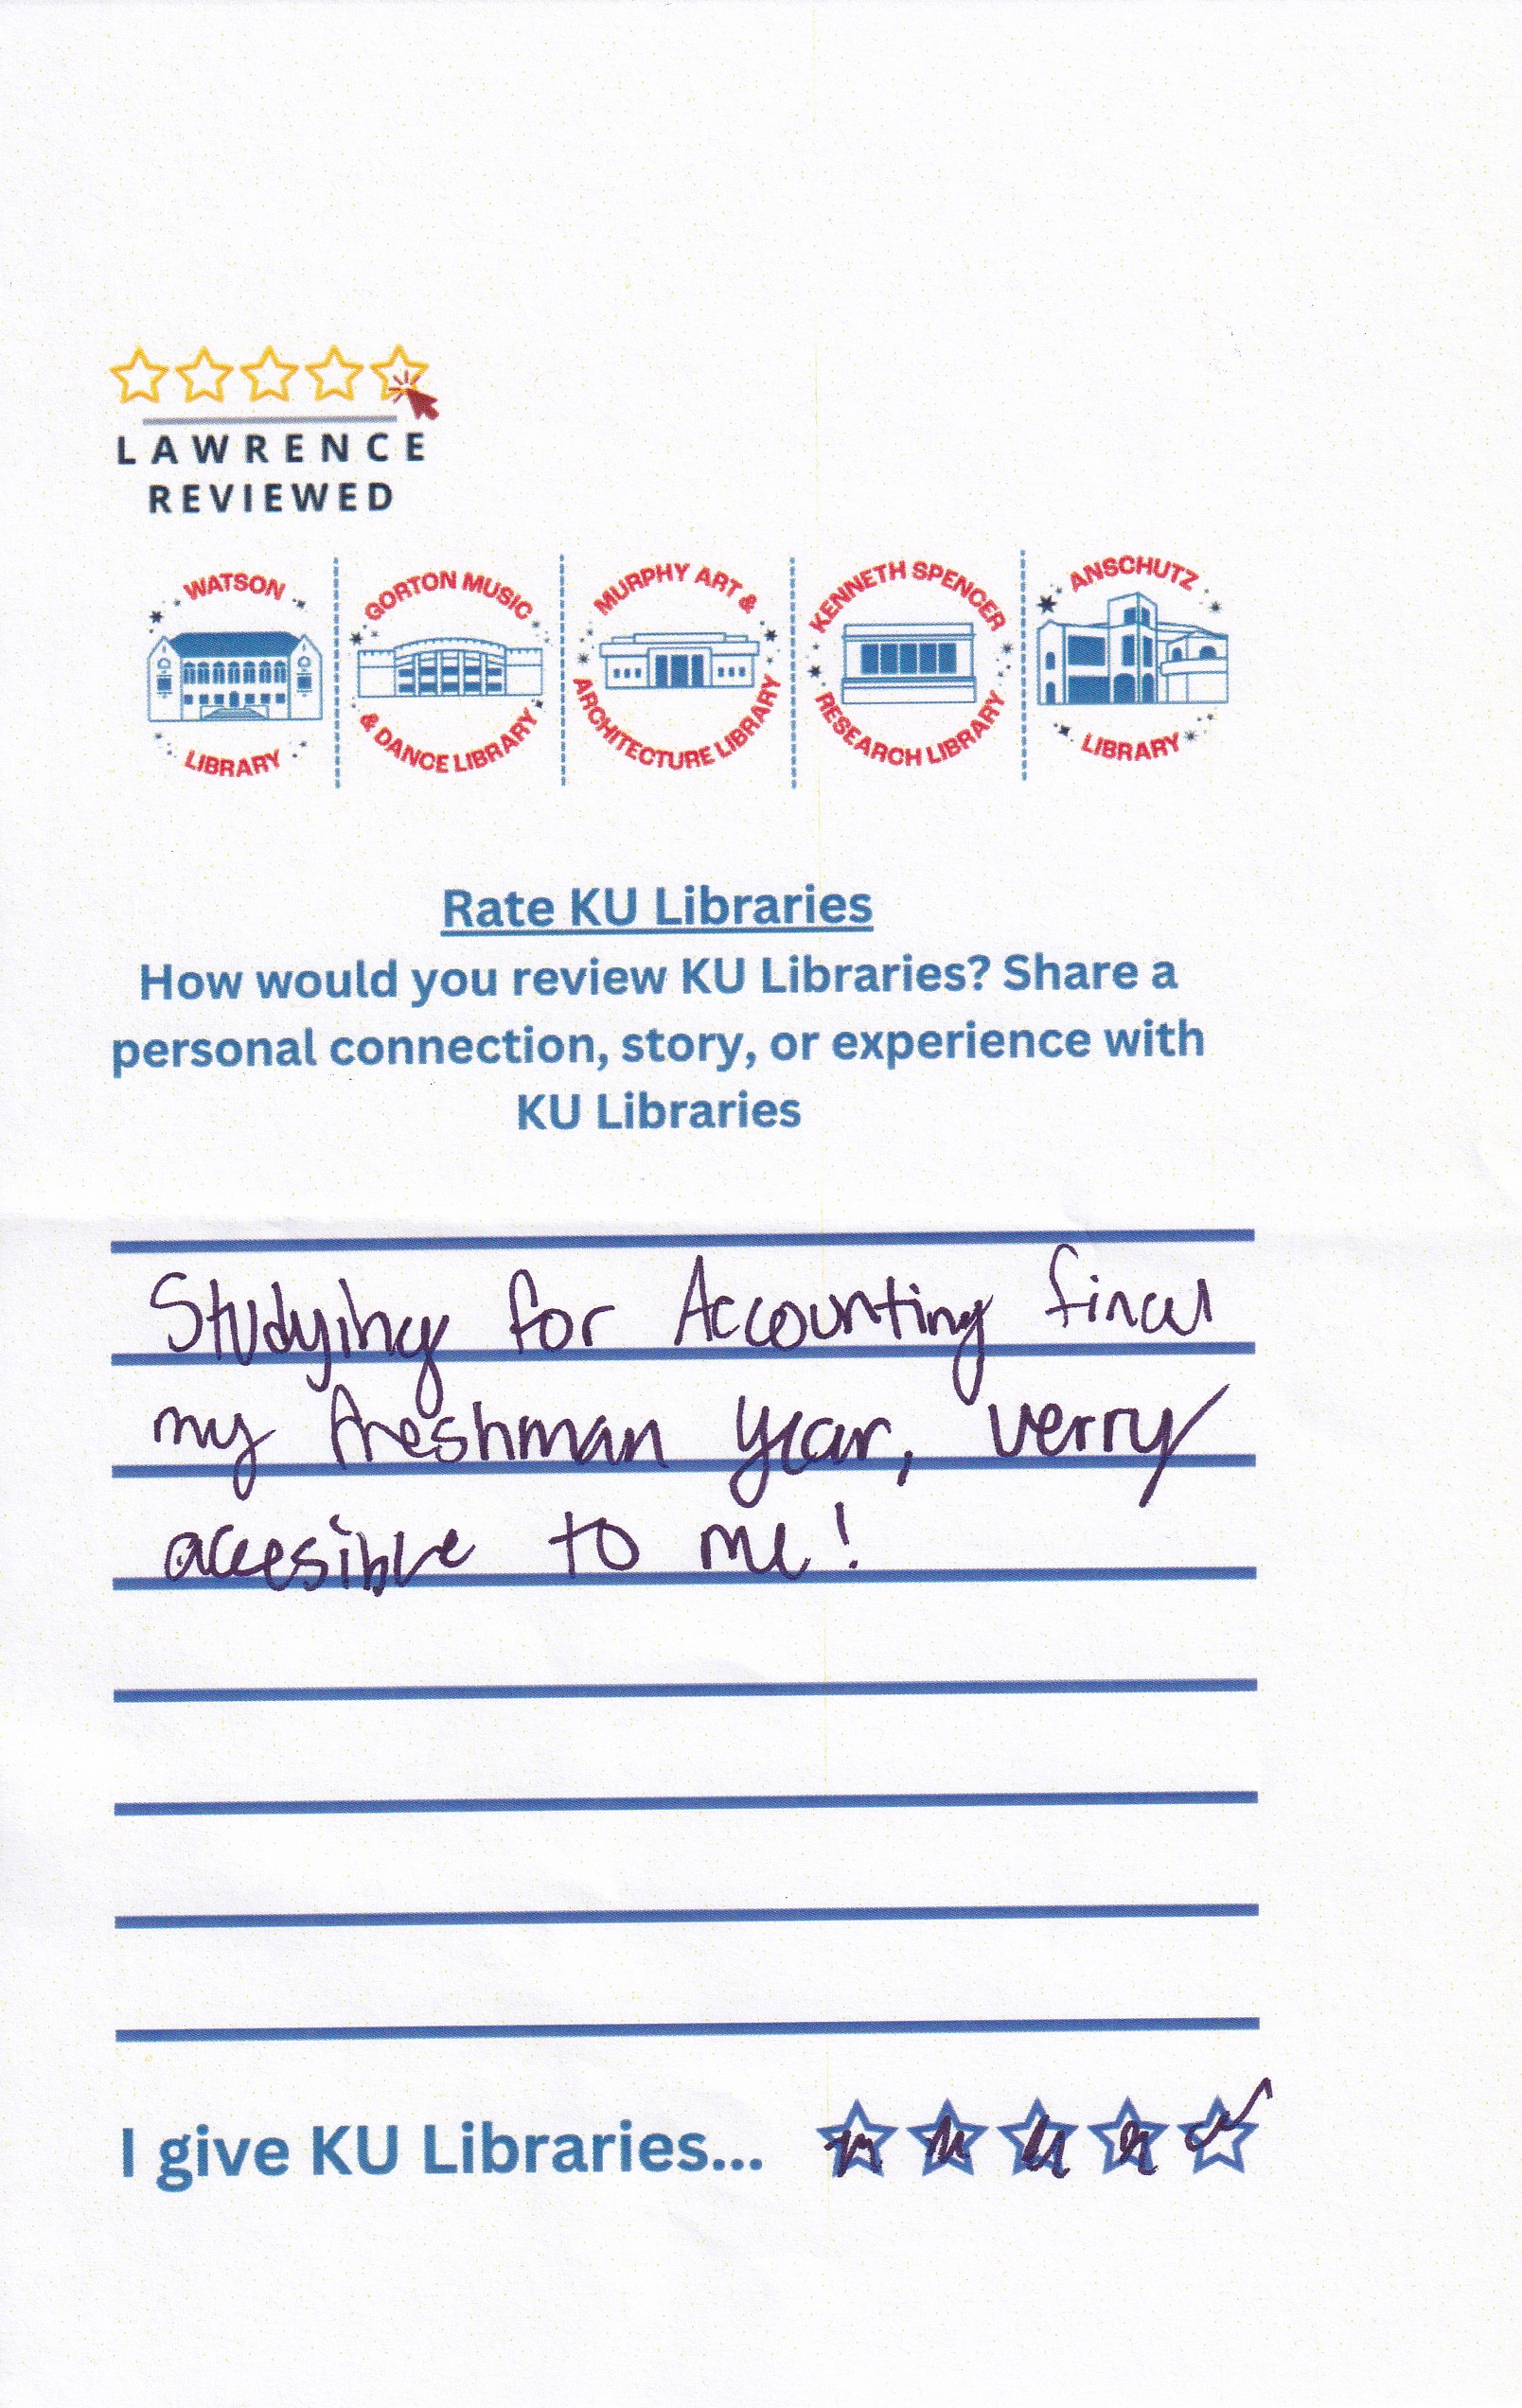 LAWRENCE
REVIEWED
WATSON LIBRARY
GORTON MUSIC & DANCE LIBRARY
MURPHY ART & ARCHITECTURE LIBRARY
KENNETH SPENCER RESEARCH LIBRARY
ANSCHUTZ LIBRARY
Rate KU Libraries
How would you review KU Libraries? Share a
personal connection, story, or experience with
KU Libraries
Studying for Accounting final
my freshman year, verry
accesible to me!
I give KU Libraries...